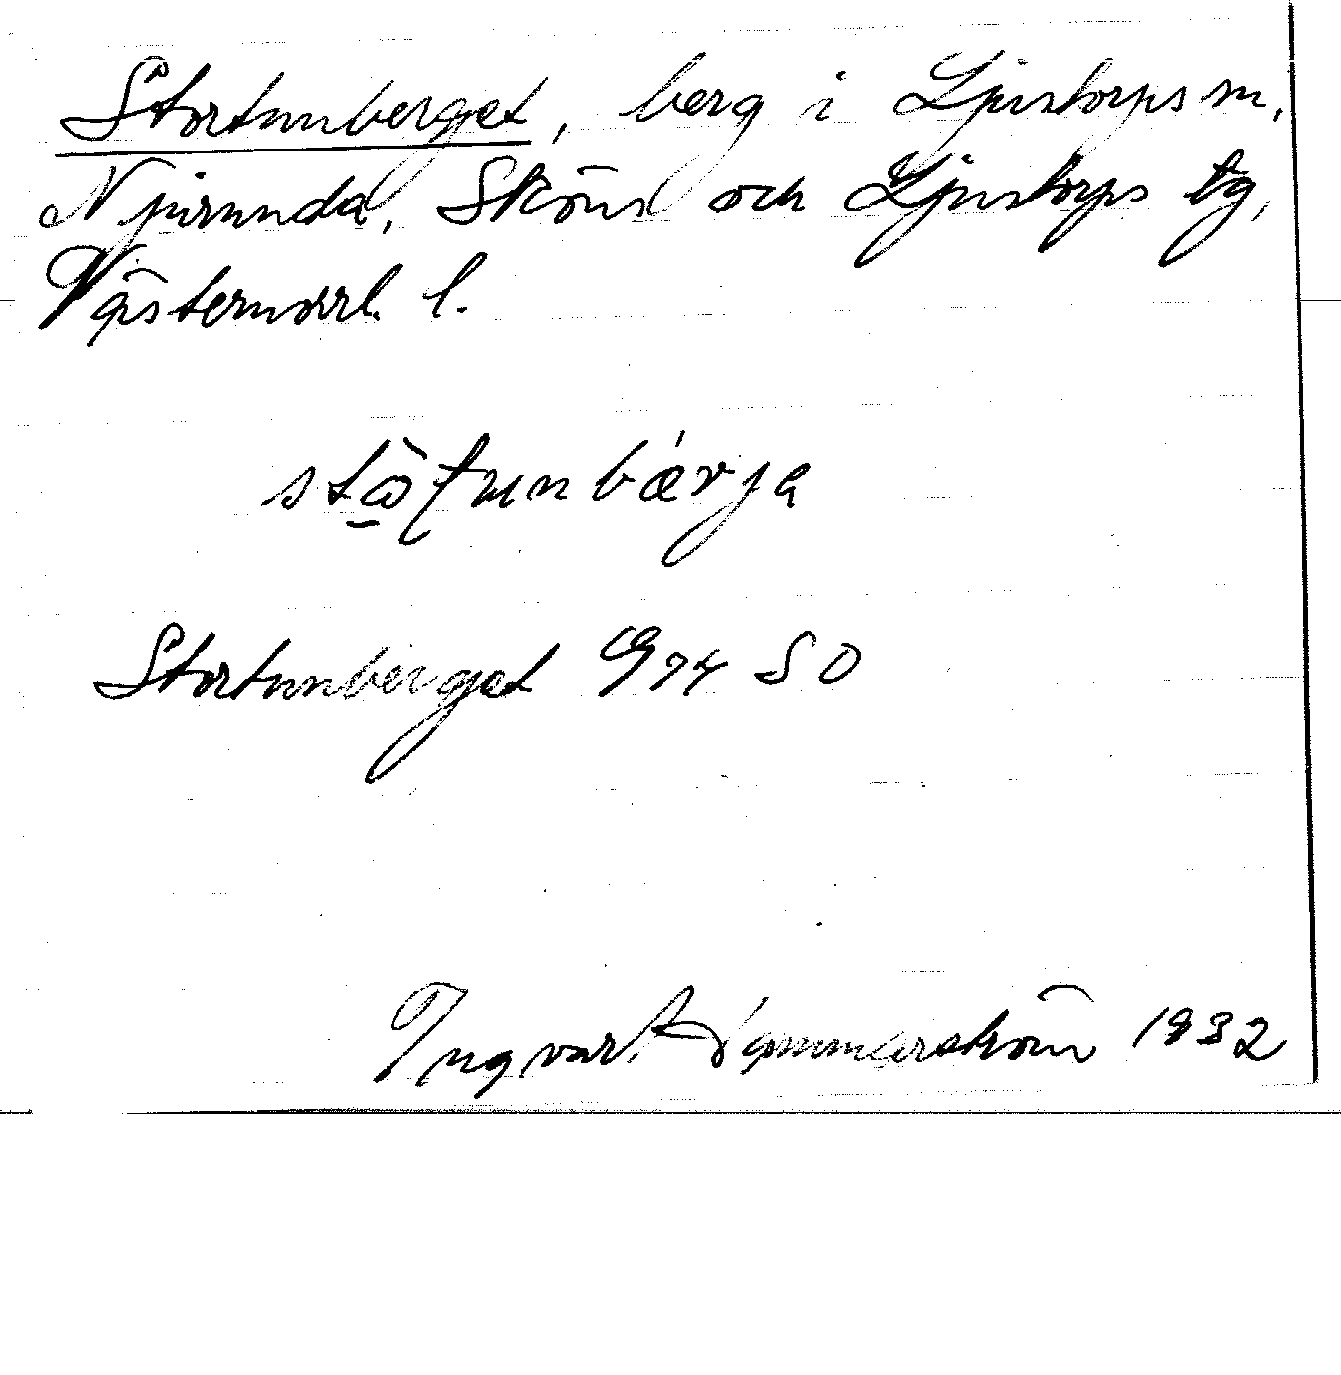 Stortunberget, berg i Ljustorps sn,
Njurunda, Sköns och Ljustorps tg,
Västernorrl. l.
Stortunberget G74 SO
Ingvar Hammarström 1932